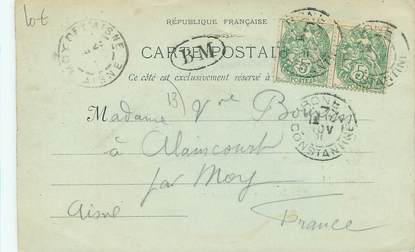 Lot
RÉPUBLIQUE FRANÇAISE
CARTE POSTALE
BM
Ce côté est exclusivement réservé à
MOY DE L'AISNE
AISNE
5
5
BONE
CONSTANTINE
13)
Madame Vve
à Alaincourt
par Moy
Aisne
France